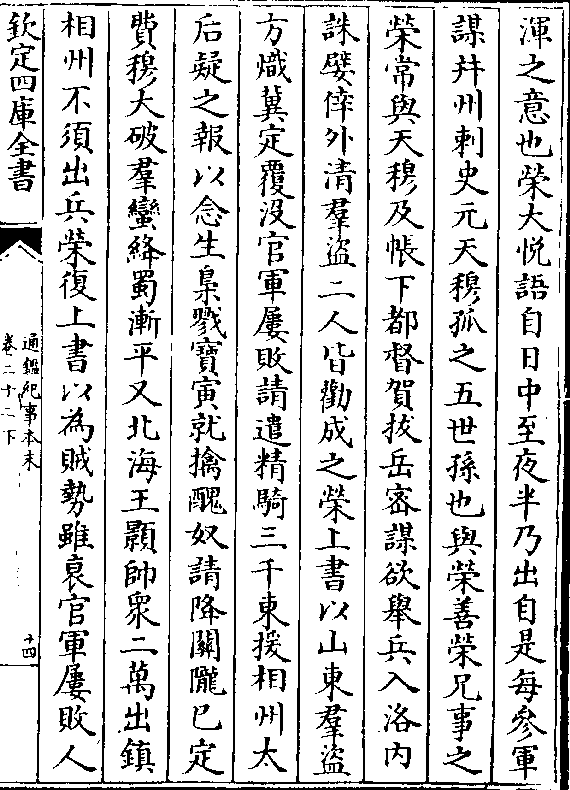 渾之意也榮大悦語自日中至夜半乃出自是每參軍
謀幷州刺史元天穆孤之五世孫也與榮善榮兄事之
榮常與天穆及帳下都督賀拔岳密謀欲舉兵入洛内
誅嬖倖外清羣盜二人皆勸成之榮上書以山東羣盜
方熾冀定覆没官軍屢敗請遣精騎三千東援相州太
后疑之報以念生梟戮寶寅就擒醜奴請降關隴已定
費穆大破羣蠻絳蜀漸平又北海王顥帥衆二萬出鎮
相州不須出兵榮復上書以為賊勢雖衰官軍屢敗人
欽定四庫全書
通鑑紀事本末
卷二十二下
十四